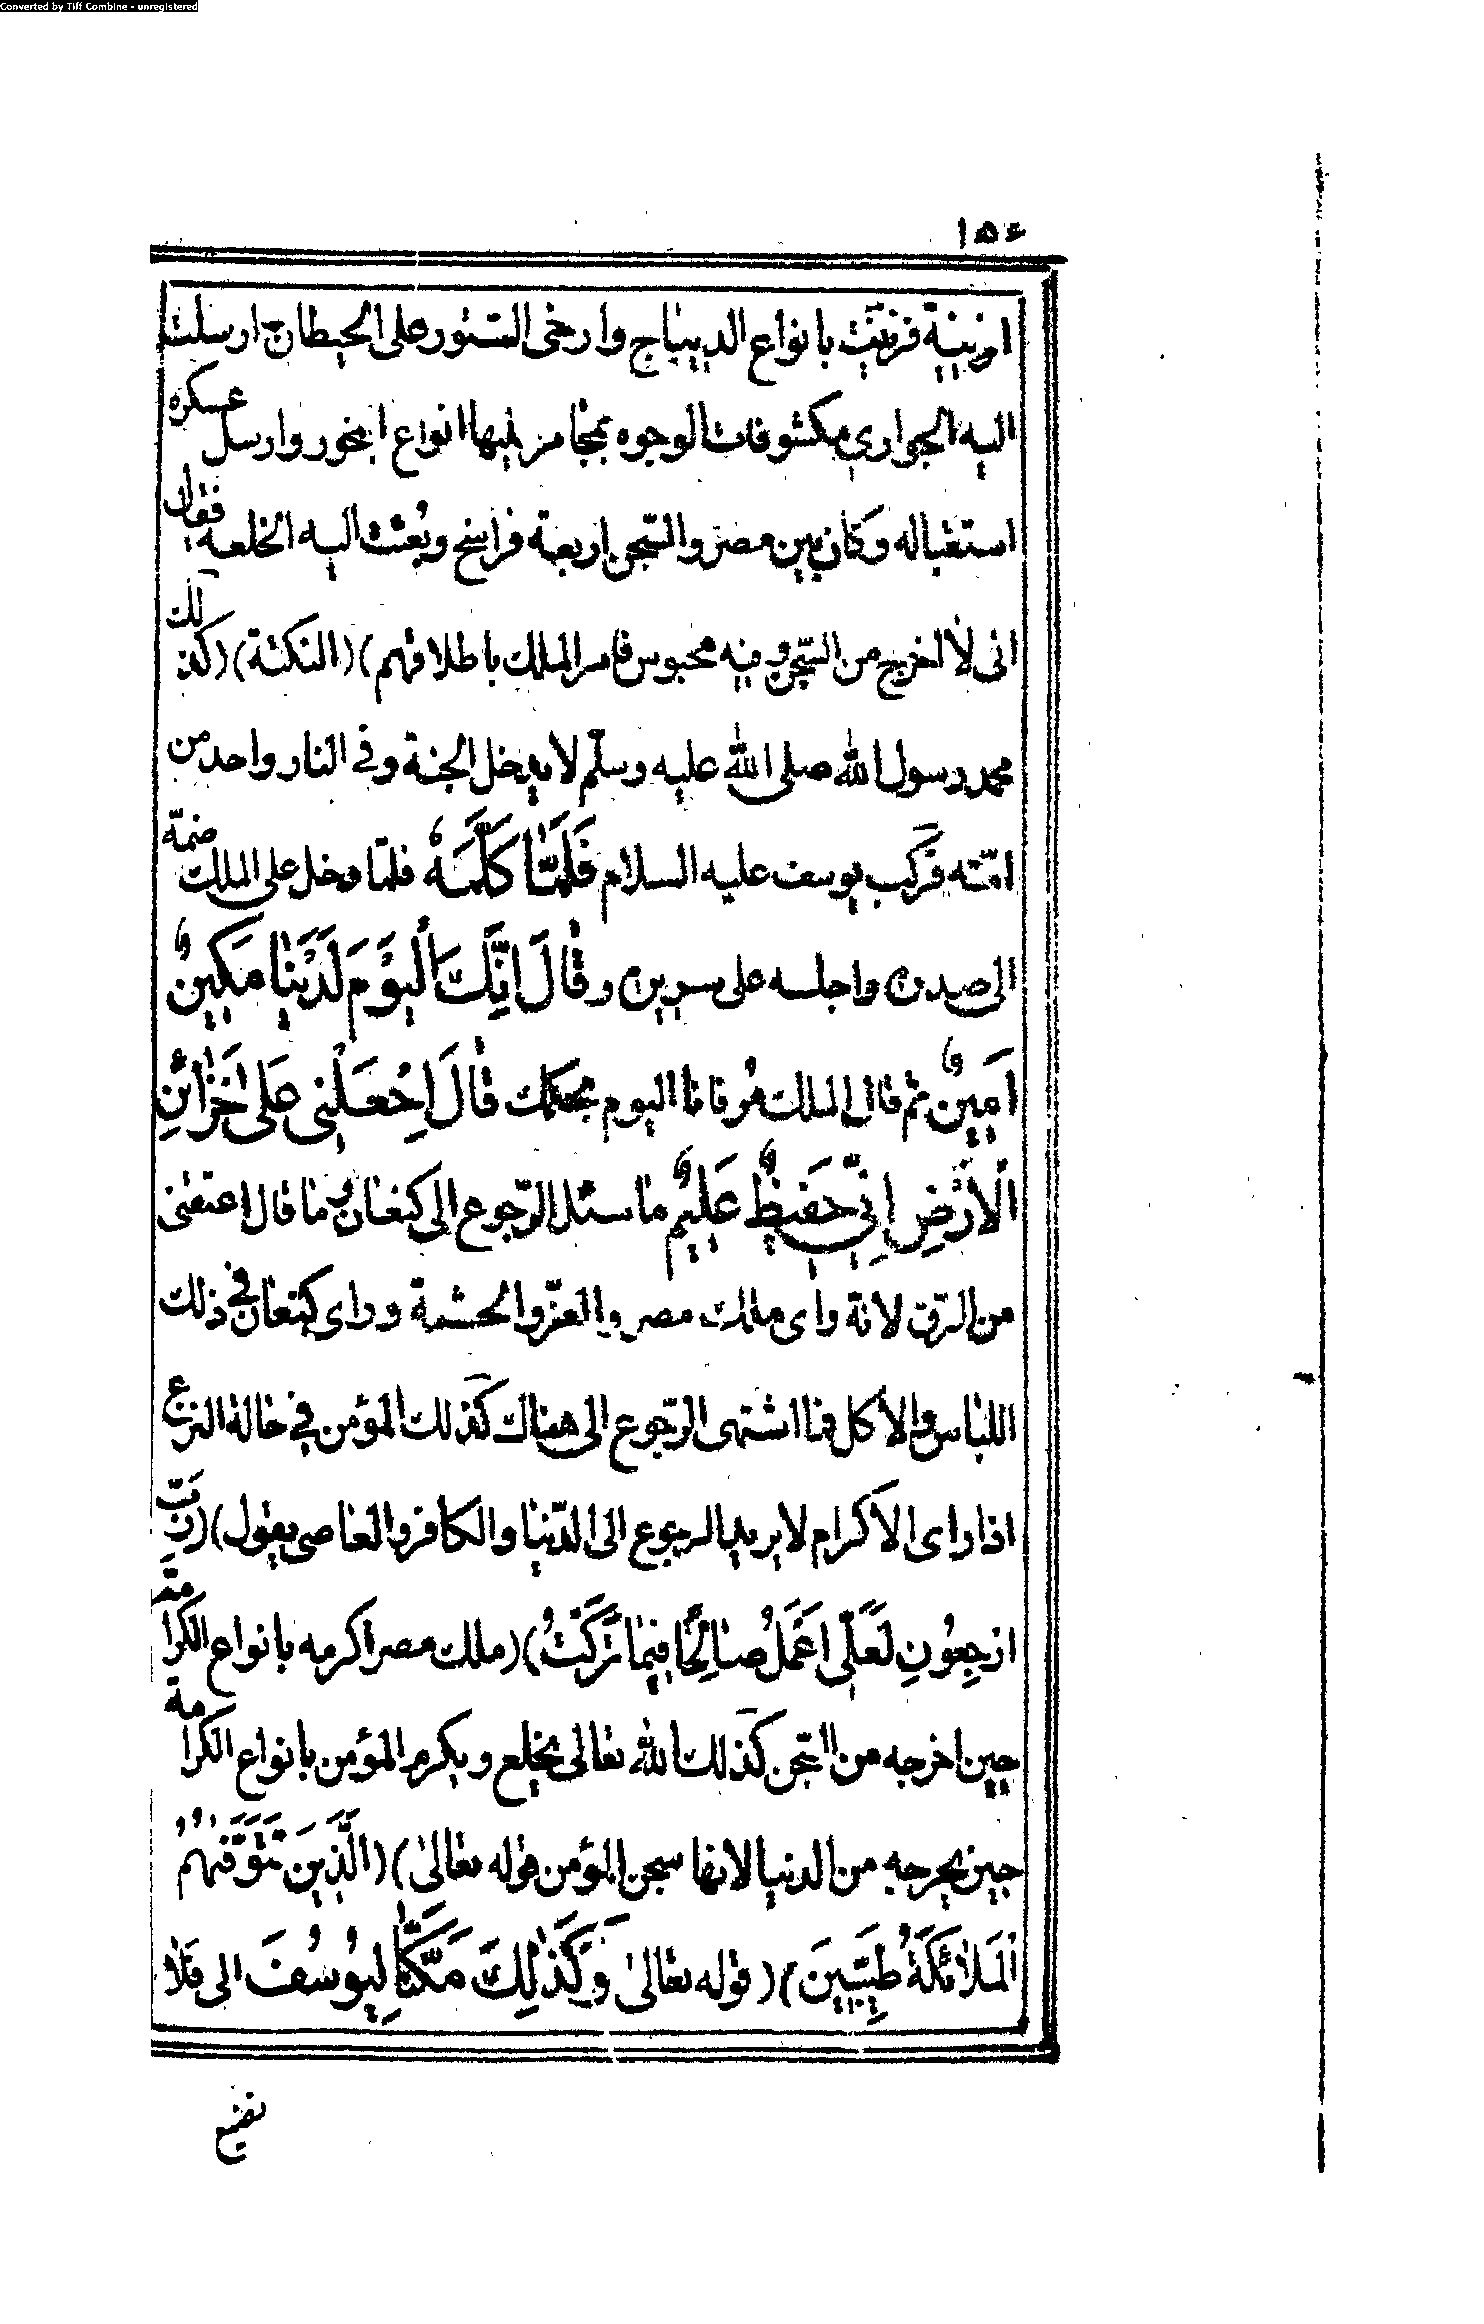 Converted by Tiff Combine - unregistered
١٥٤
ان زينة فزينت بانواع الديباج وارخى الستور على الحيطان ارسلت
اليه الجواري مكشوفات الوجوه بمجامر فيها انواع البخور وارسل عسكره
استقباله وكان بين مصر والسّجن اربعة فراسخ وبعث اليه الخلعة فقال
انى لا اخرج من السّجن وفيه محبوس فامر الملك باطلاقهم) (النكتة) (كذلك
محمد رسول الله صلى الله عليه وسلّم لا يدخل الجنة وفي النار واحد من
امّته فركب يوسف عليه السلام فَلَمَّا كَلَّمَهُ فلمّا دخل على الملك ضمّه
الى صدره واجلسه على سريره وقَالَ اِنَّكَ الْيَوْمَ لَدَيْنَا مَكِينٌ
اَمِينٌ ثم قال الملك مُر فانا اليوم بحكمك قَالَ اجْعَلْنِي عَلَى خَزَائِنِ
الْاَرْضِ اِنِّي حَفِيظٌ عَلِيمٌ ما سئل الرّجوع الى كنعان وما قال اعتقنى
من الرّق لانه راى ملك مصر والعزّ والحشمة وراى كنعان في ذلك
اللباس والاكل فما اشتهى الرّجوع الى هناك كذلك المؤمن في حالة النزع
اذا راى الاكرام لا يريد الرجوع الى الدّنيا والكافر والعاصى يقول) (رَبِّ
ارْجِعُونِ لَعَلّى اَعْمَلُ صَالِحًا فِيمَا تَرَكْتُ) (ملك مصر اكرمه بانواع الكرامة
حين اخرجه من السّجن كذلك الله تعالى يخلع ويكرم المؤمن بانواع الكرامة
حين يخرجه من الدنيا لانها سجن المؤمن قوله تعالى) (الَّذِينَ تَتَوَفّٰهُمُ
الْمَلَائِكَةُ طَيِّبِينَ) (قوله تعالى وَكَذٰلِكَ مَكَّنَّا لِيُوسُفَ الى فلا